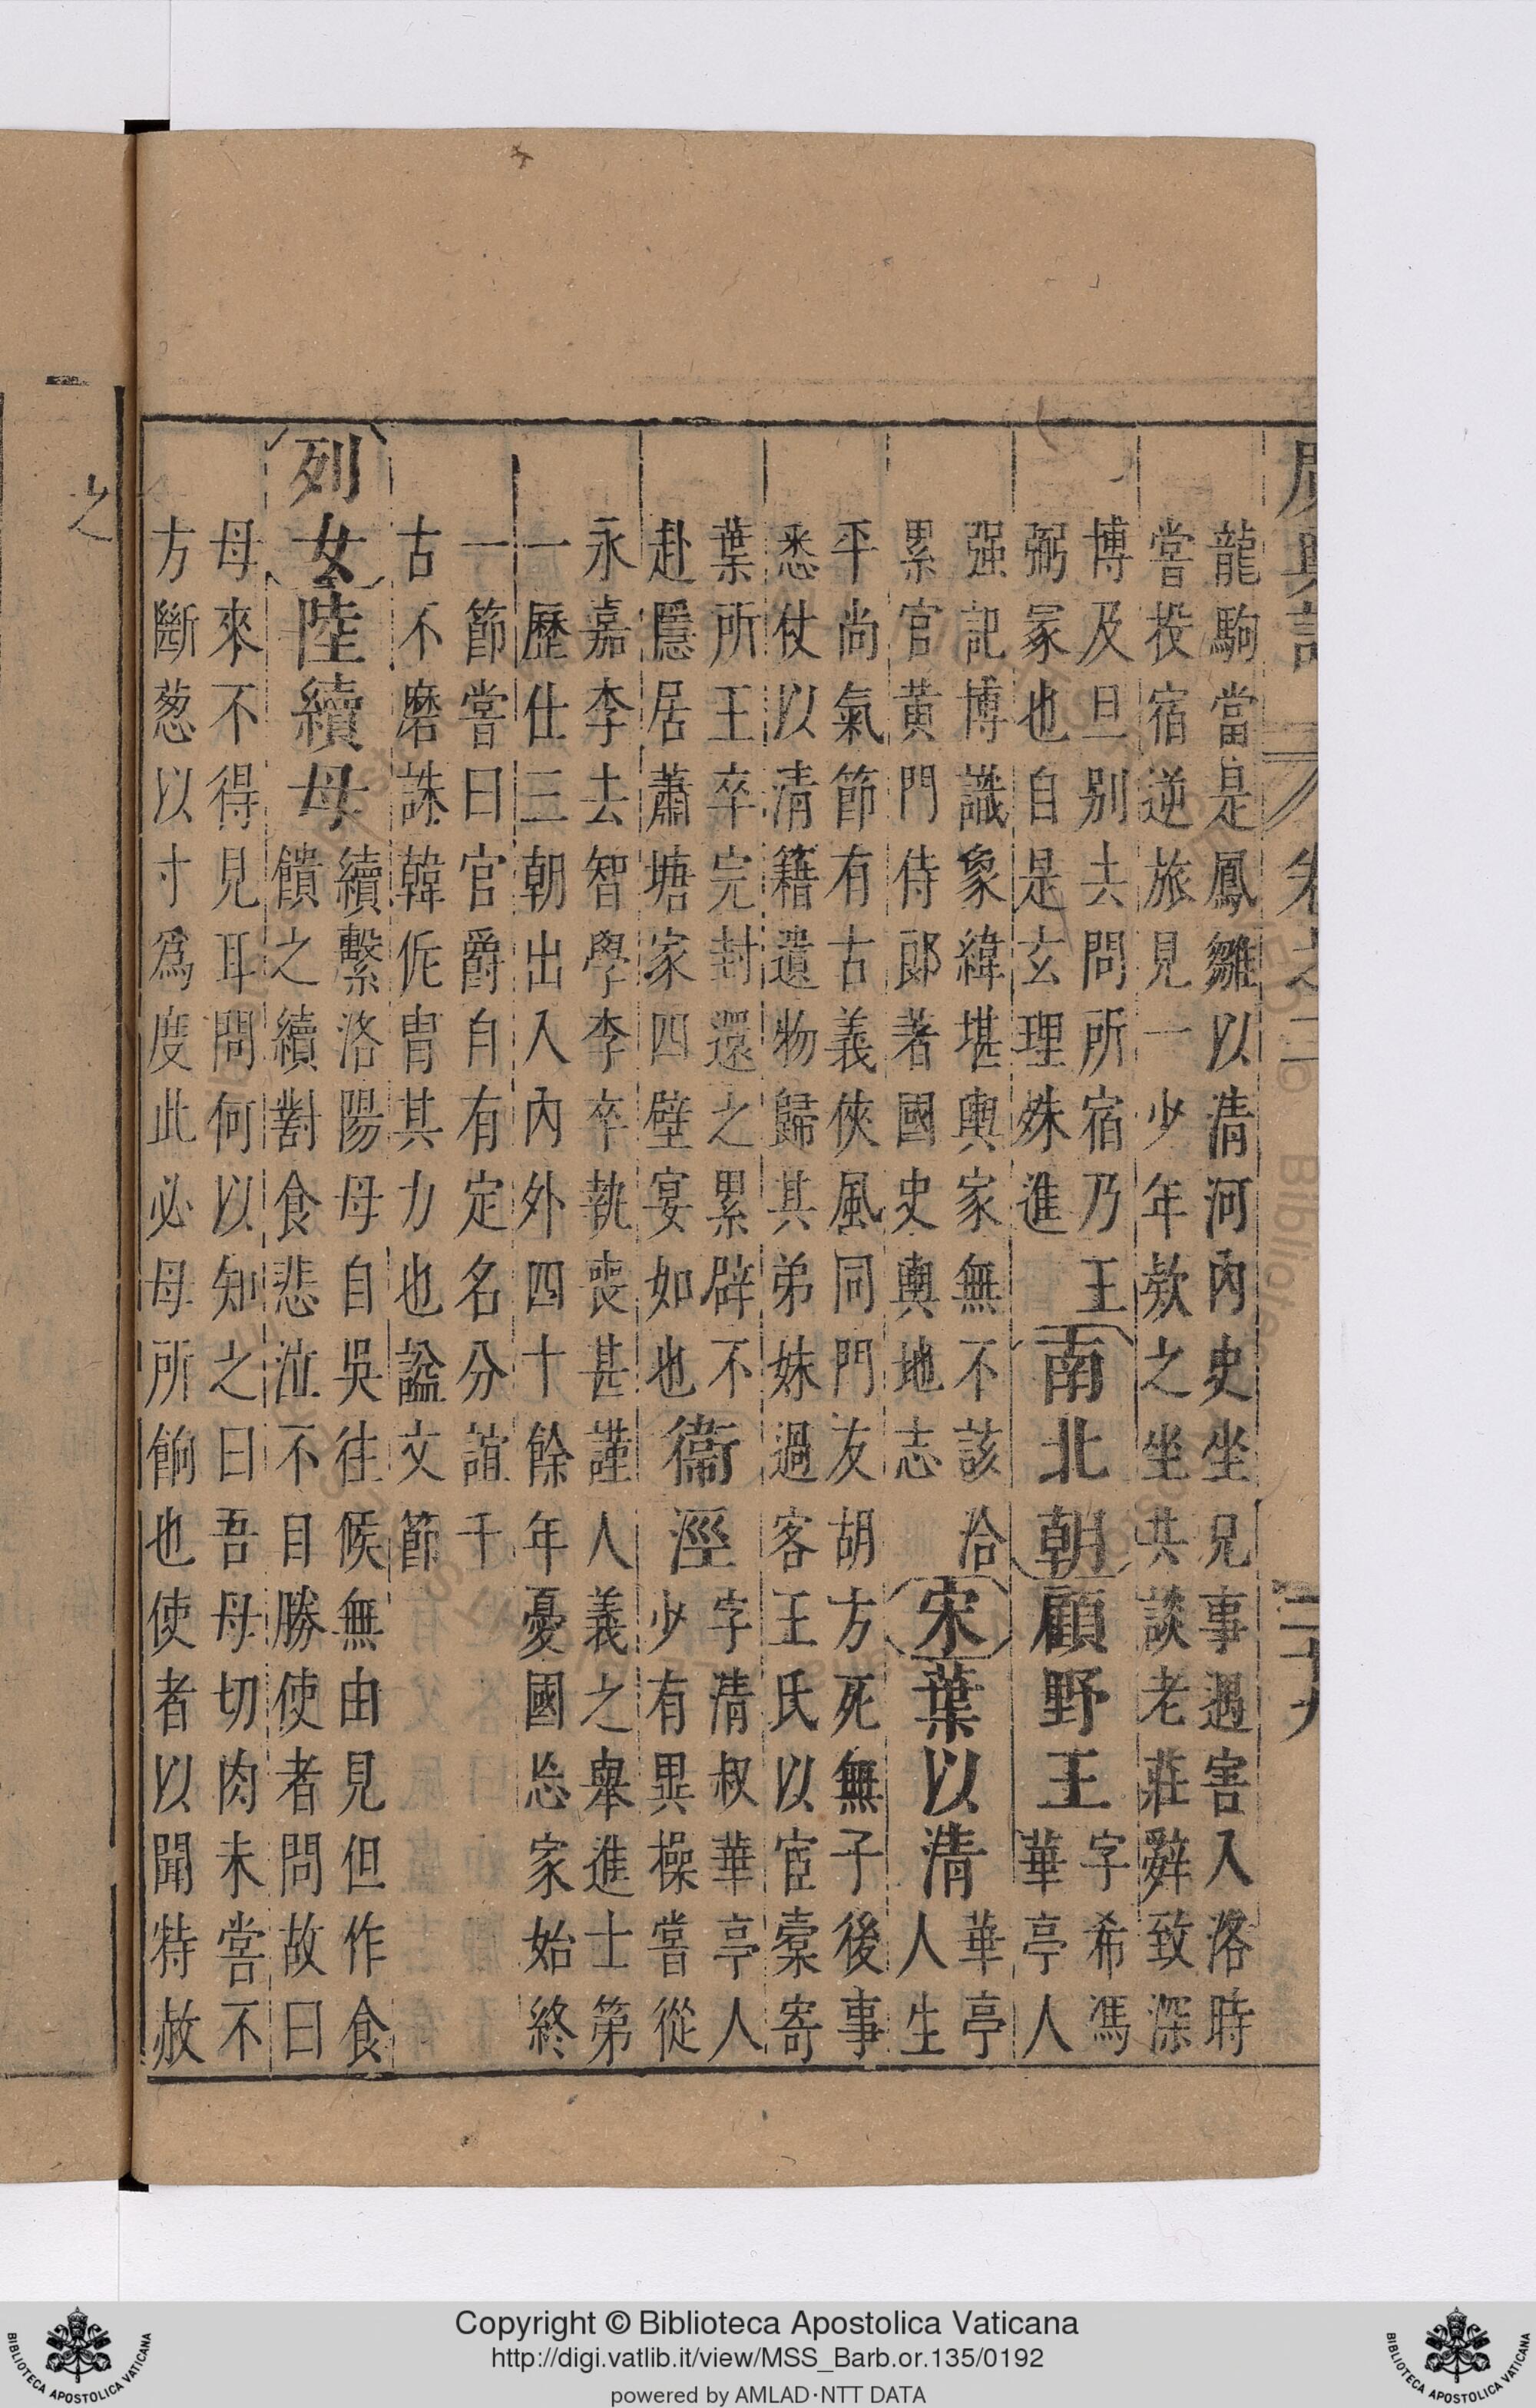 龍駒當是鳳雛以清河內史坐兄事遇害入洛時
嘗投宿逆旅見一少年欵之坐共談老莊辤致深
博及旦别去問所宿乃王
弼冢也自是玄理殊進
南北朝顧野王
字希馮
華亭人
强記博識象緯堪輿家無不該洽
累官黃門侍郎著國史輿地志
宋葉以清
華亭
人生
平尚氣節有古義俠風同門友胡方死無子後事
悉仗以清籍遺物歸其弟妹過客王氏以宦槖寄
葉所王卒完封還之累辟不
赴隱居蕭塘家四壁宴如也
衞涇
字清叔華亭人
少有異操嘗從
永嘉李去智學李卒執喪甚謹人義之舉進士第
一歷仕三朝出入內外四十餘年憂國忘家始終
一節嘗曰官爵自有定名分誼千
古不磨誅韓侂胄其力也謚文節
列女陸續母
續繫洛陽母自吳往候無由見但作食
饋之續對食悲泣不目勝使者問故曰
母來不得見耳問何以知之曰吾母切肉未嘗不
方斷葱以寸爲度此必母所餉也使者以聞特赦
之
卷之二
二十九
Copyright © Biblioteca Apostolica Vaticana
http://digi.vatlib.it/view/MSS_Barb.or.135/0192
powered by AMLAD·NTT DATA
BIBLIOTECA APOSTOLICA VATICANA
BIBLIOTECA APOSTOLICA VATICANA